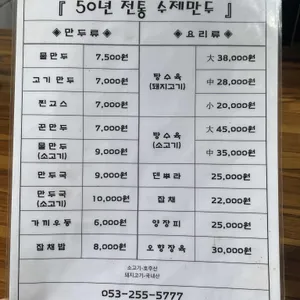 『 50년 전통 수제만두 』
◈ 만두류 ◈ ◈ 요리류 ◈
물만두 7,500원 탕수육 (돼지고기) 大 38,000원
고기만두 7,000원 中 28,000원
찐교스 7,000원 小 20,000원
군만두 7,000원 탕수육 (소고기) 大 45,000원
물만두 (소고기) 9,000원 中 35,000원
만두국 9,000원 덴뿌라 25,000원
만두국 (소고기) 10,000원 잡채 22,000원
가끼우동 6,000원 양장피 25,000원
잡채밥 8,000원 오향장육 30,000원
소고기-호주산
돼지고기-국내산
053-255-5777